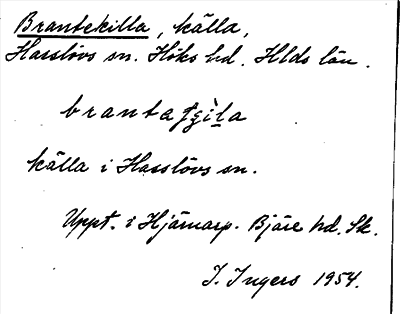 Brantekilla, källa,
Hasslövs sn. Höks hd. Hlds län.
branta
källa i Hasslövs sn.
Uppt. i Hjärnarp. Bjäre hd. Sk.
I. Ingers 1954.